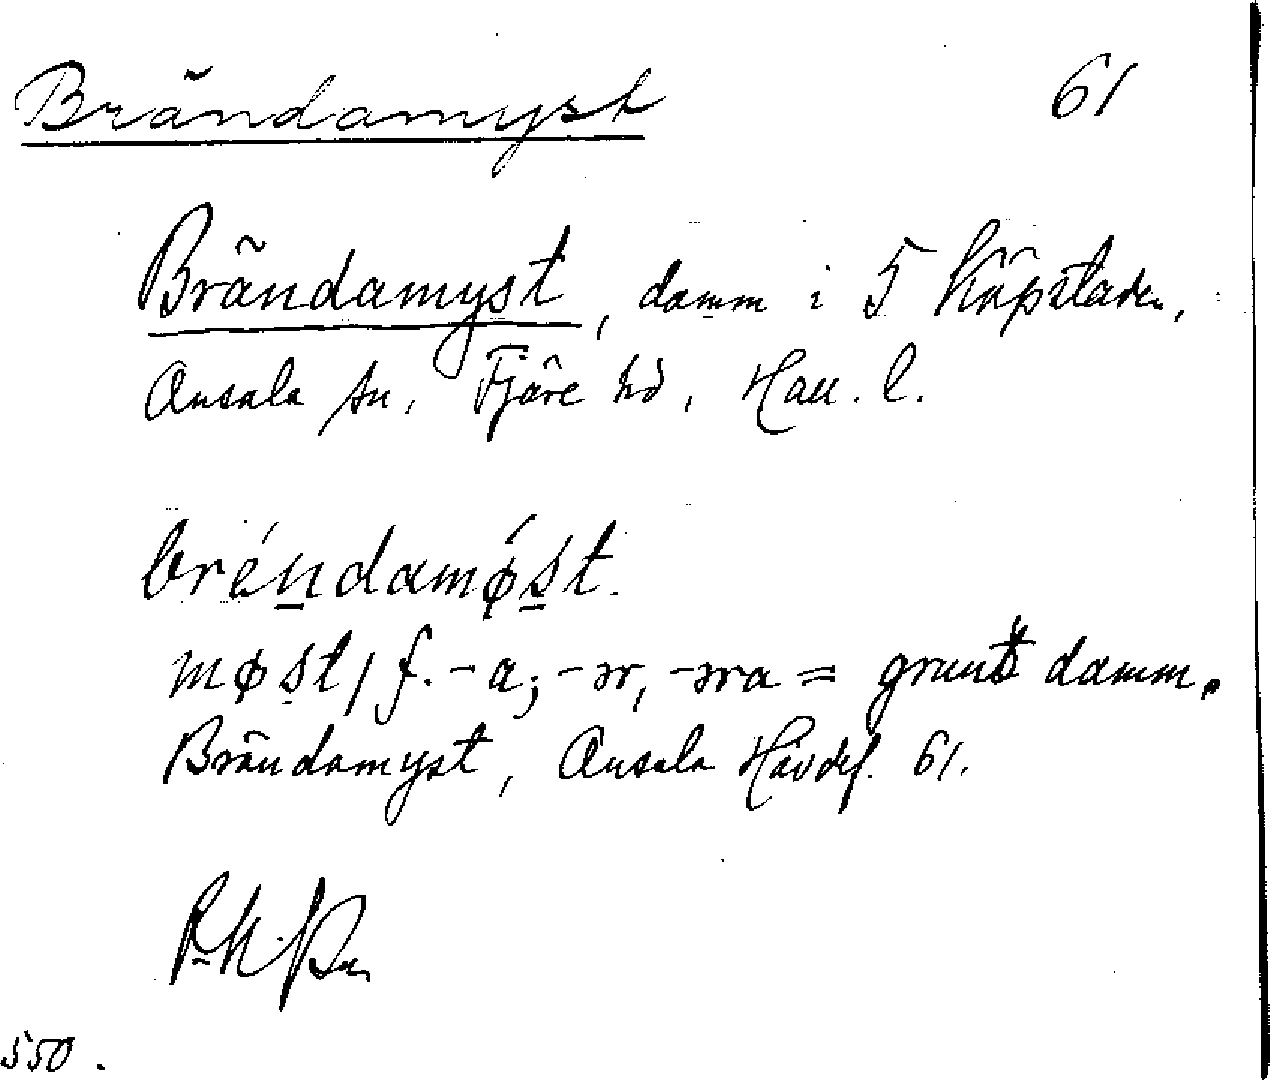 Brändamyst 61
Brändamyst, damm i 5 Köpstaden,
Onsala sn, Fjäre hd, Hall. l.
bréndamǿst.
møst, f. -a; -ər, -əra = grund damm.
Brändamyst, Onsala Havdsf. 61.
550.